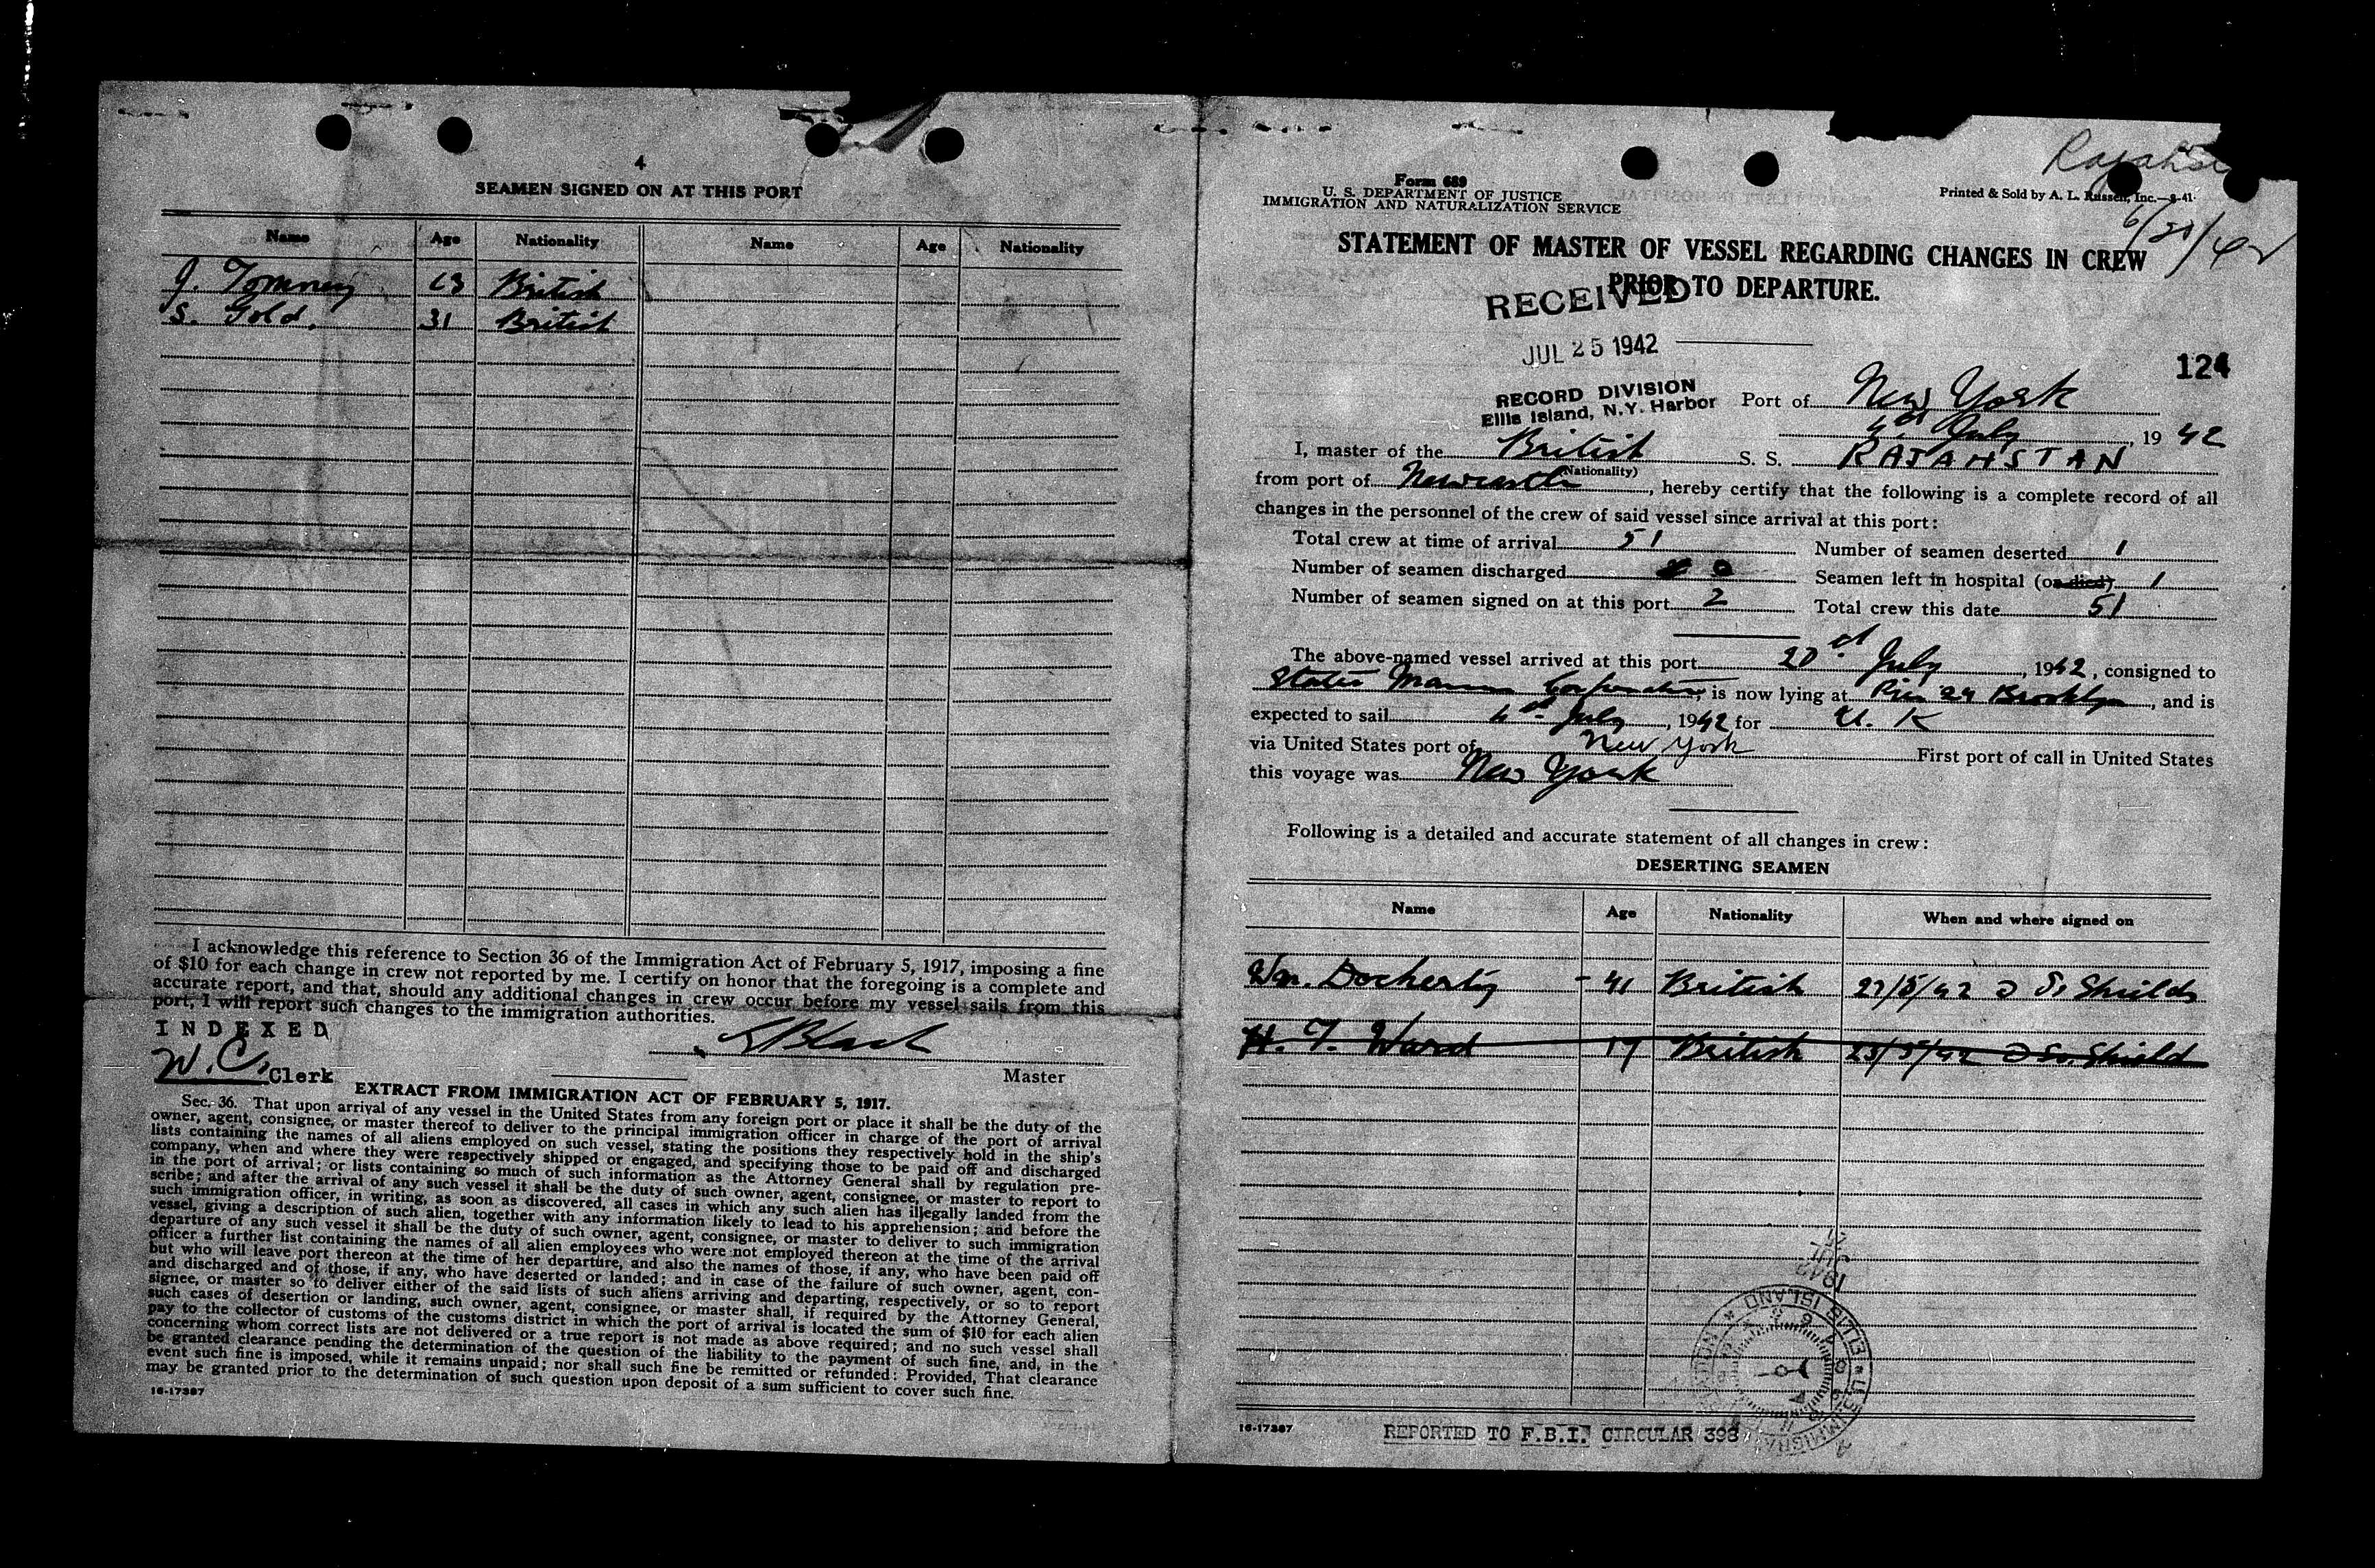 4
SEAMEN SIGNED ON AT THIS PORT
Name Age Nationality Name Age Nationality
British
S. Gold. 31 British
I acknowledge this reference to Section 36 of the Immigration Act of February 5, 1917, imposing a fine
of $10 for each change in crew not reported by me. I certify on honor that the foregoing is a complete and
accurate report, and that, should any additional changes in crew occur before my vessel sails from this
port, I will report such changes to the immigration authorities.
INDEXED
Clerk
Master
EXTRACT FROM IMMIGRATION ACT OF FEBRUARY 5, 1917.
Sec. 36. That upon arrival of any vessel in the United States from any foreign port or place it shall be the duty of the
owner, agent, consignee, or master thereof to deliver to the principal immigration officer in charge of the port of arrival
lists containing the names of all aliens employed on such vessel, stating the positions they respectively hold in the ship's
company, when and where they were respectively shipped or engaged, and specifying those to be paid off and discharged
in the port of arrival; or lists containing so much of such information as the Attorney General shall by regulation pre-
scribe; and after the arrival of any such vessel it shall be the duty of such owner, agent, consignee, or master to report to
such immigration officer, in writing, as soon as discovered, all cases in which any such alien has illegally landed from the
vessel, giving a description of such alien, together with any information likely to lead to his apprehension; and before the
departure of any such vessel it shall be the duty of such owner, agent, consignee, or master to deliver to such immigration
officer a further list containing the names of all alien employees who were not employed thereon at the time of the arrival
but who will leave port thereon at the time of her departure, and also the names of those, if any, who have been paid off
and discharged and of those, if any, who have deserted or landed; and in case of the failure of such owner, agent, con-
signee, or master so to deliver either of the said lists of such aliens arriving and departing, respectively, or so to report
such cases of desertion or landing, such owner, agent, consignee, or master shall, if required by the Attorney General,
pay to the collector of customs of the customs district in which the port of arrival is located the sum of $10 for each alien
concerning whom correct lists are not delivered or a true report is not made as above required; and no such vessel shall
be granted clearance pending the determination of the question of the liability to the payment of such fine, and, in the
event such fine is imposed, while it remains unpaid; nor shall such fine be remitted or refunded: Provided, That clearance
may be granted prior to the determination of such question upon deposit of a sum sufficient to cover such fine.
16-17387
Form 689
U. S. DEPARTMENT OF JUSTICE
IMMIGRATION AND NATURALIZATION SERVICE
Printed & Sold by A. L. Russell, Inc.—8-41
STATEMENT OF MASTER OF VESSEL REGARDING CHANGES IN CREW
PRIOR TO DEPARTURE.
RECEIVED
JUL 25 1942
124
RECORD DIVISION
Ellis Island, N.Y. Harbor
Port of New York
July, 19 42
I, master of the British S. S. RAJAHSTAN
(Nationality)
from port of Newcastle, hereby certify that the following is a complete record of all
changes in the personnel of the crew of said vessel since arrival at this port:
Total crew at time of arrival 51 Number of seamen deserted 1
Number of seamen discharged 0 Seamen left in hospital (or died) 1
Number of seamen signed on at this port 2 Total crew this date 51
The above-named vessel arrived at this port July, 1942, consigned to
States Marine Corporation, is now lying at Pier 29 Brooklyn, and is
expected to sail July, 1942 for U. K
via United States port of New York First port of call in United States
this voyage was New York
Following is a detailed and accurate statement of all changes in crew:
DESERTING SEAMEN
Name Age Nationality When and where signed on
Wm. Docherty - 41 British 22/5/42 So Shields
H. T. Ward 17 British 23/5/42 So. Shield
16-17387
REPORTED TO F.B.I. CIRCULAR 398